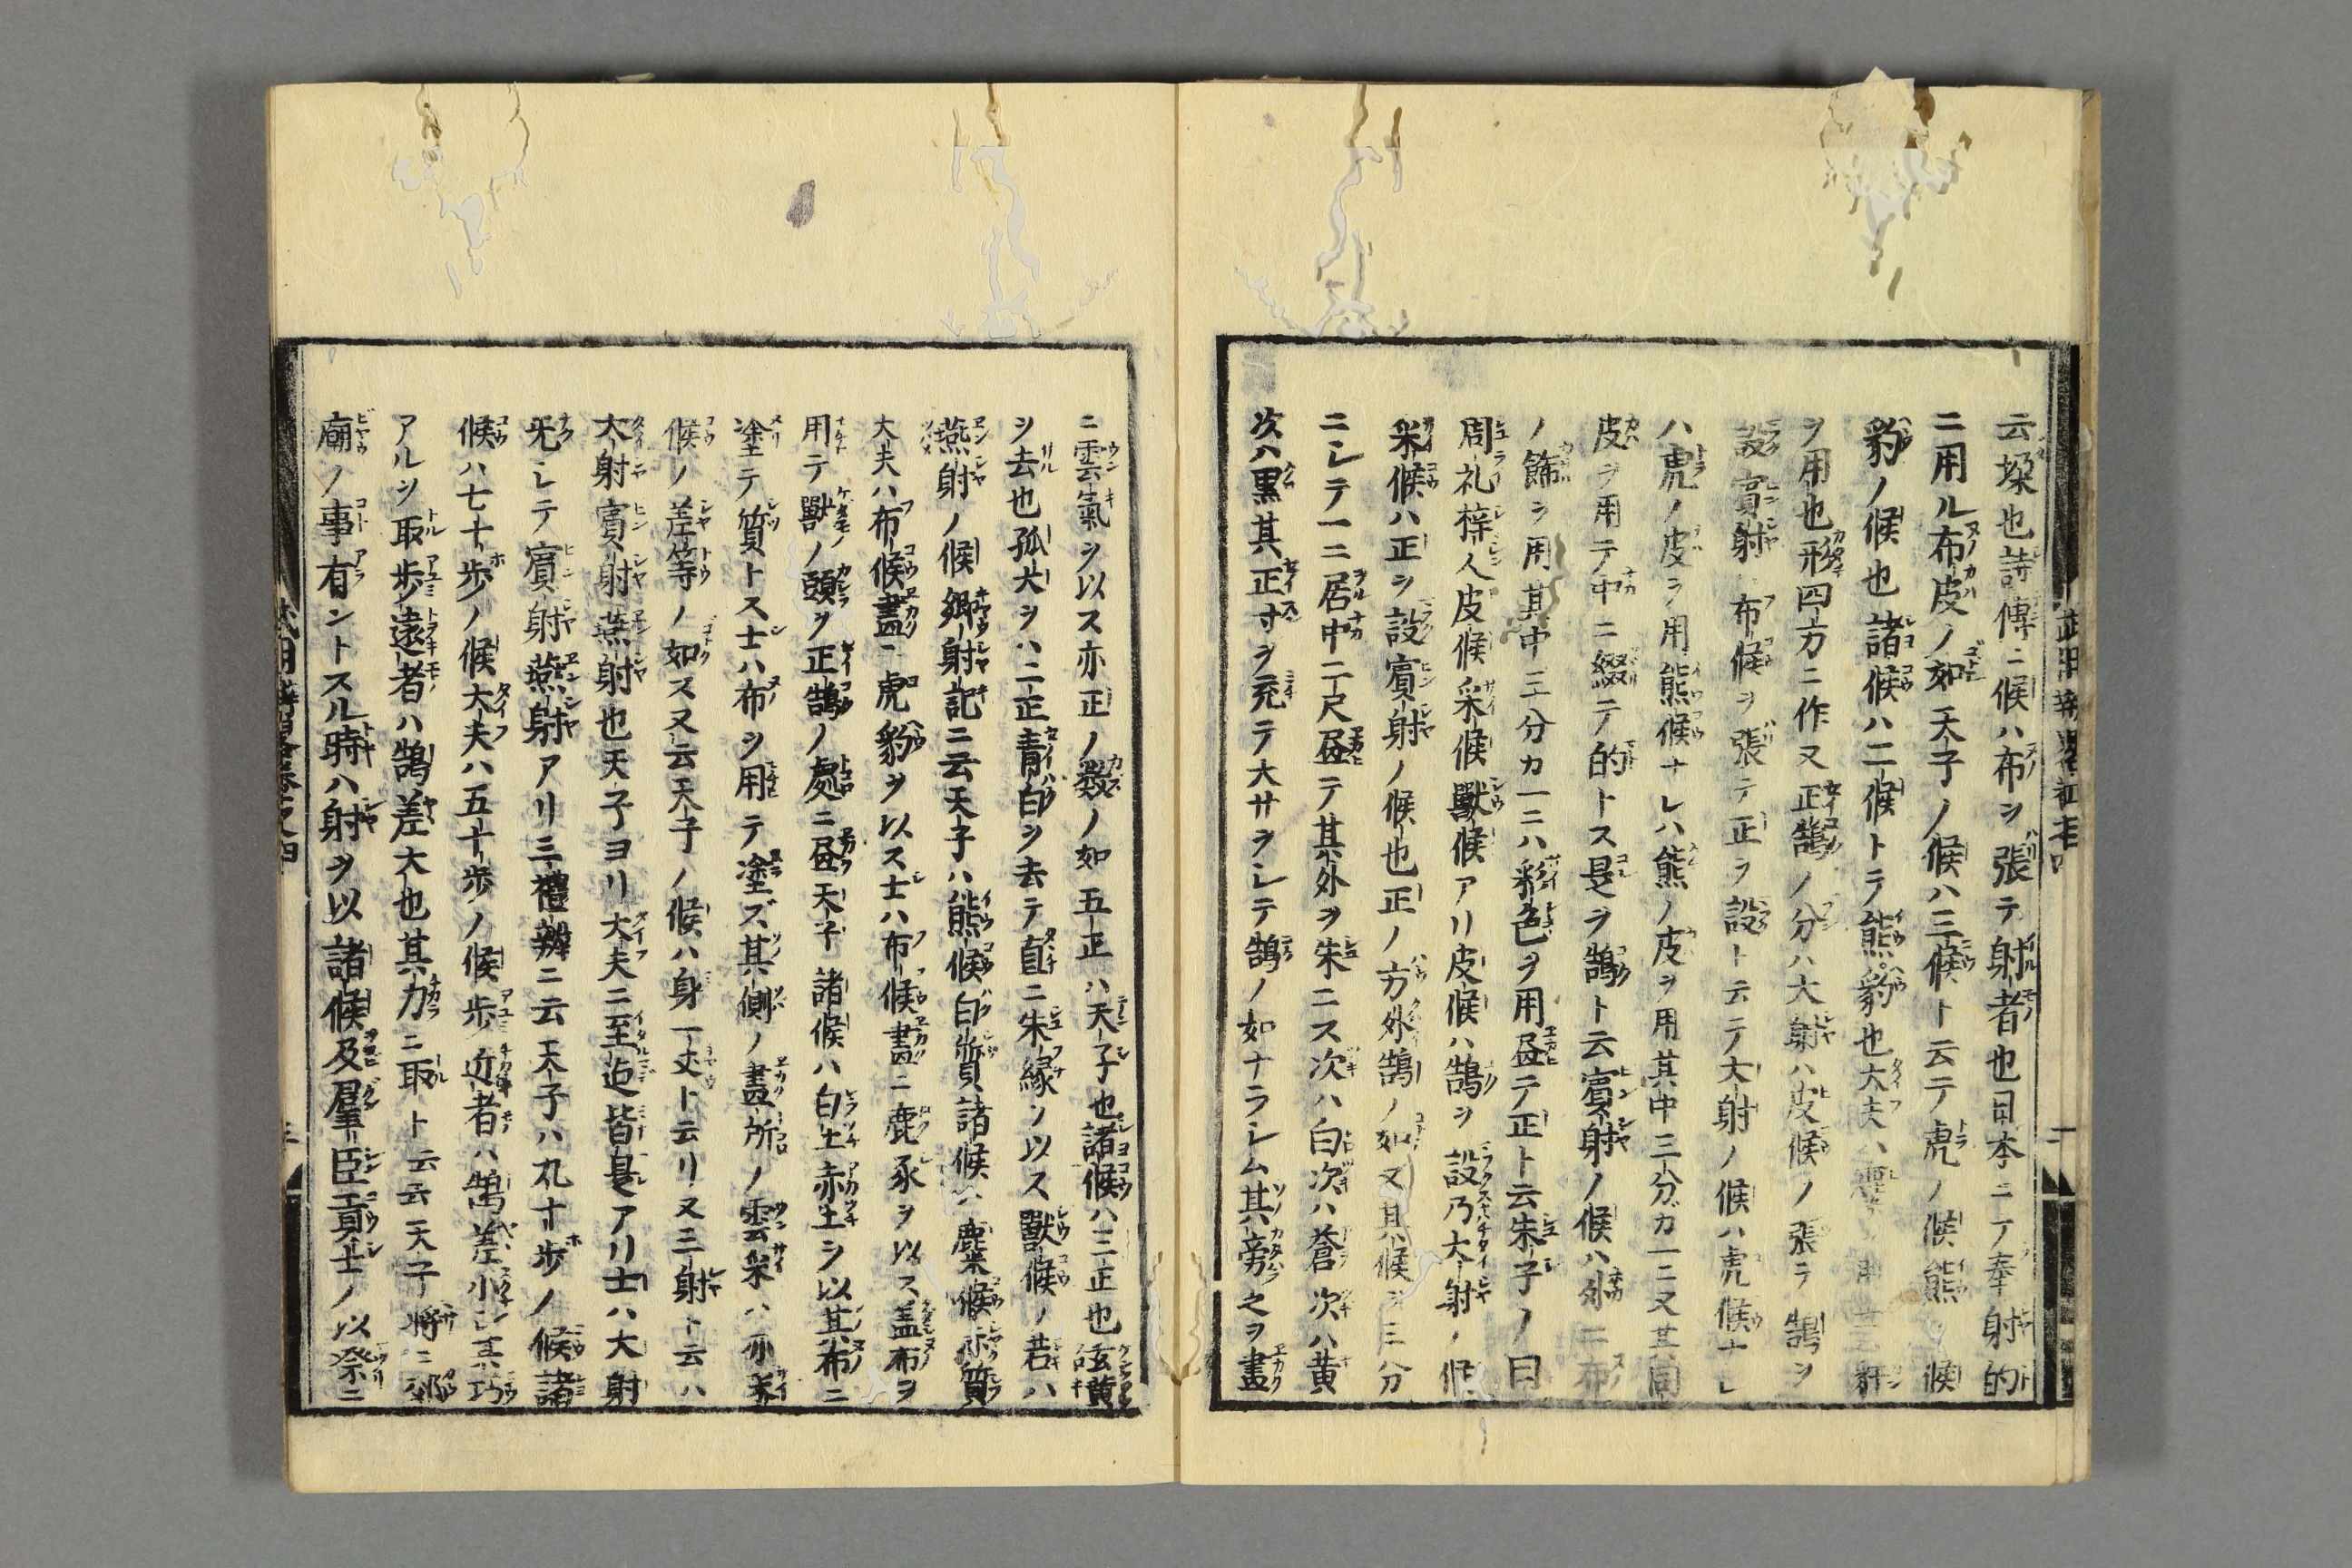 云垜也詩傳ニ候ハ布ヲ張テ射者也日本ニテ奉射的
ニ用ル布皮ノ如天子ノ候ハ三候ト云テ虎ノ候熊ノ候
豹ノ候也諸候ハ二候トテ熊豹也大夫ハ
ヲ用也形四方ニ作又正鵠ノ分ハ大射ハ皮候ノ張テ鵠ヲ
設賓射ハ布候ヲ張テ正ヲ設ト云テ大射ノ候ハ虎候ナレ
ハ虎ノ皮ヲ用熊候ナレハ熊ノ皮ヲ用其中三分カ一ニ又其同
皮ヲ用テ中ニ綴テ的トス是ヲ鵠ト云賓射ノ候ハ外ニ布
ノ飾ヲ用其中三分カ一ニハ彩色ヲ用昼テ正ト云朱子ノ曰
周礼梓人皮候采候獸候アリ皮候ハ鵠ヲ設乃大射ノ候
采候ハ正ヲ設賓射ノ候也正ノ方外鵠ノ如又其候ヲ三分
ニレテ一ニ居中二尺昼テ其外ヲ朱ニス次ハ白次ハ蒼次ハ黄
次ハ黒其正寸ヲ充テ大サヲレテ鵠ノ如ナラレム其旁之ヲ畫
ニ雲氣ヲ以ス亦正ノ数ノ如五正ハ天子也諸候ハ三正也玄黄
ヲ去也孤犬ヲハ二正青白ヲ去テ直ニ朱緑ヲ以ス獸候ノ若ハ
燕射ノ候郷射記ニ云天子ハ熊候白質諸候ハ麋候赤質
大夫ハ布候畫ニ虎豹ヲ以ス士ハ布候畫ニ鹿豕ヲ以ス盖布ヲ
用テ獸ノ頭ヲ正鵠ノ處ニ昼天子諸候ハ白土赤土ヲ以其布ニ
塗テ質トス士ハ布ヲ用テ塗ズ其側ノ畫所ノ雲采ハ亦采
候ノ差等ノ如ス又云天子ノ候ハ身一丈ト云リ又三射ト云ハ
大射賓射燕射也天子ヨリ大夫ニ至迠皆是アリ士ハ大射
旡レテ賓射燕射アリ三禮辨ニ云天子ハ九十歩ノ候諸
候ハ七十歩ノ候大夫ハ五十歩ノ候歩近者ハ鵠差小也其巧
アルヲ取歩遠者ハ鵠差大也其力ニ取ト云云天子將ニ郊
廟ノ事有ントスル時ハ射ヲ以諸候及羣臣貢士ノ以祭ニ